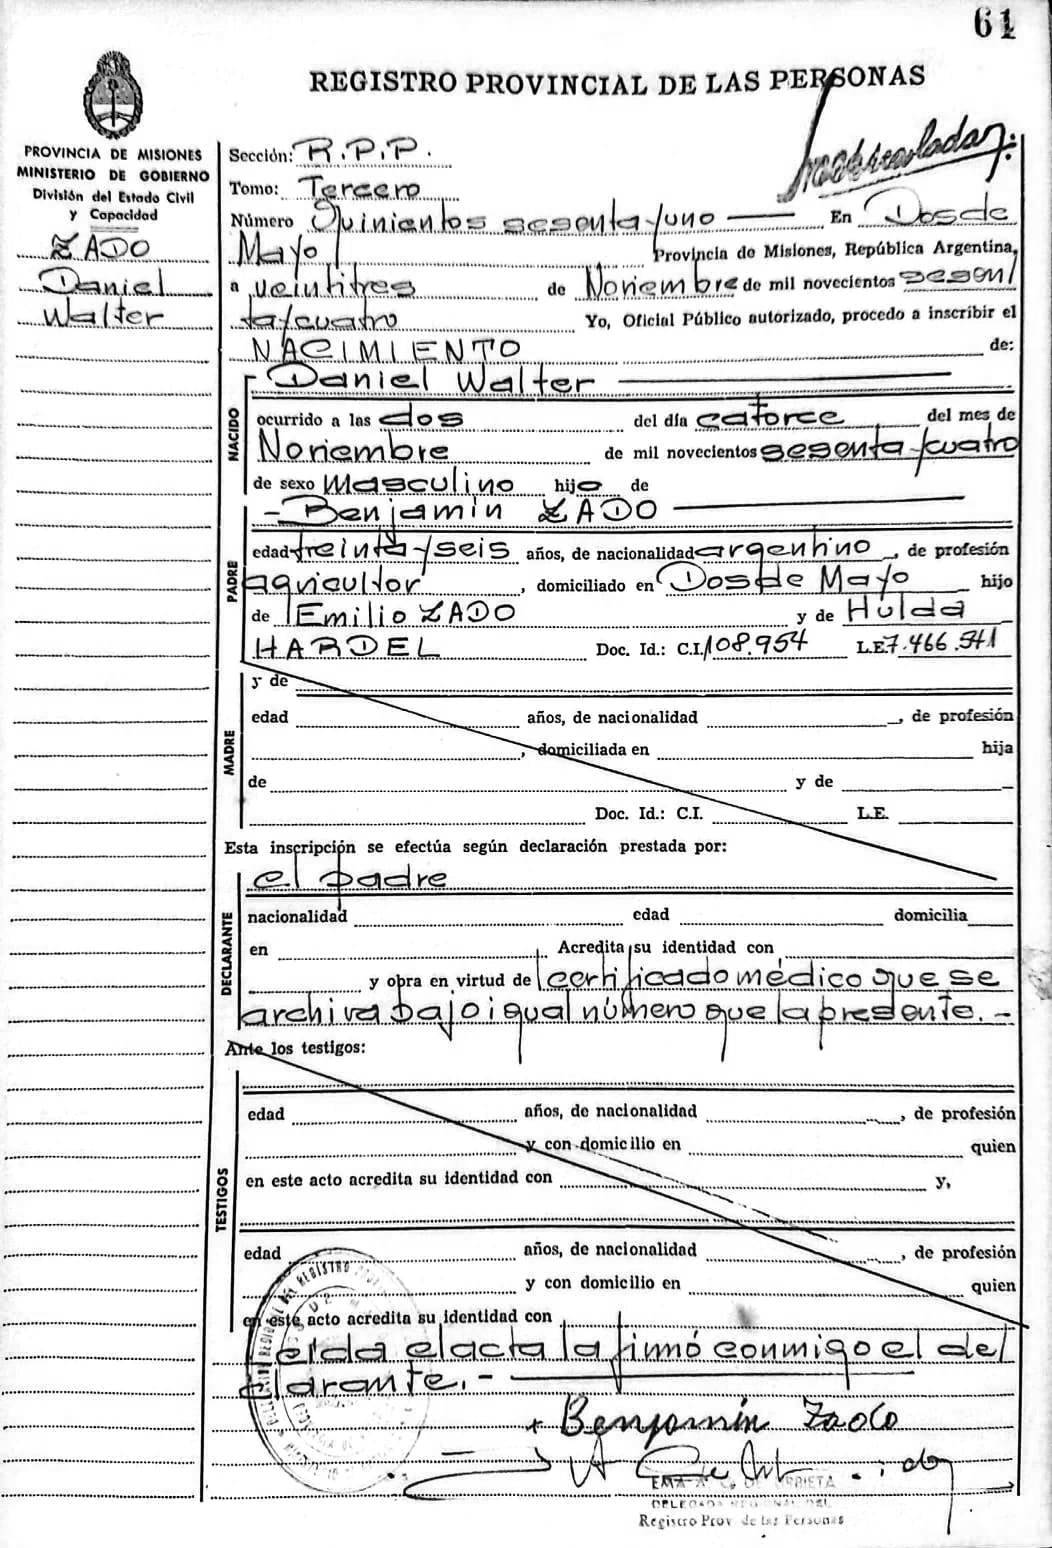 61
REGISTRO PROVINCIAL DE LAS PERSONAS
PROVINCIA DE MISIONES
MINISTERIO DE GOBIERNO
División del Estado Civil
y Capacidad
ZADO
Daniel
Walter
Sección: R.P.P.
Tomo: Tercero
Número Quinientos sesenta y uno En Dos de
Mayo Provincia de Misiones, República Argentina,
a veintitres de Noviembre de mil novecientos sesen
ta y cuatro Yo, Oficial Público autorizado, procedo a inscribir el
NACIMIENTO de:
NACIDO
Daniel Walter
ocurrido a las dos del día catorce del mes de
Noviembre de mil novecientos sesenta y cuatro
de sexo masculino hijo de
PADRE
- Benjamin ZADO
edad treinta y seis años, de nacionalidad argentino, de profesión
agricultor, domiciliado en Dos de Mayo hijo
de Emilio ZADO y de Hulda
HARDEL Doc. Id.: C.I. 108.954 L.E. 7.466.541
MADRE
y de
edad años, de nacionalidad , de profesión
, domiciliada en hija
de y de
Doc. Id.: C.I. L.E.
Esta inscripción se efectúa según declaración prestada por:
DECLARANTE
el padre
nacionalidad edad domicilia
en . Acredita su identidad con
y obra en virtud de certificado médico que se
archiva bajo igual número que la presente. -
Ante los testigos:
TESTIGOS
edad años, de nacionalidad , de profesión
y con domicilio en quien
en este acto acredita su identidad con y,
edad años, de nacionalidad , de profesión
y con domicilio en quien
en este acto acredita su identidad con
Leída el acta la firmó conmigo el del
clarante. -
Benjamín Zado
EMA A. C. DE URRIETA
DELEGADA REGIONAL DEL
Registro Prov. de las Personas